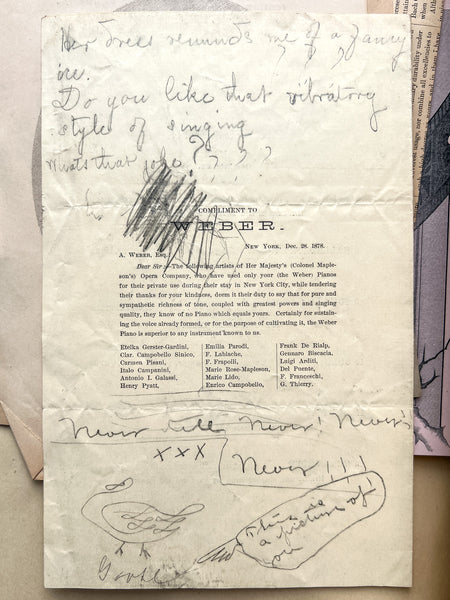 Her dress reminds me of a fancy
ice.
Do you like that vibratory
style of singing
Whats that joke? ? ? ?
COMPLIMENT TO
WEBER.
NEW YORK, Dec. 28. 1878.
A. WEBER, ESQ.
Dear Sir:—The following artists of Her Majesty's (Colonel Maple-
son's) Opera Company, who have used only your (the Weber) Pianos
for their private use during their stay in New York City, while tendering
their thanks for your kindness, deem it their duty to say that for pure and
sympathetic richness of tone, coupled with greatest powers and singing
quality, they know of no Piano which equals yours. Certainly for sustain-
ing the voice already formed, or for the purpose of cultivating it, the Weber
Piano is superior to any instrument known to us.
Etelka Gerster-Gardini,
Clar. Campobello Sinico,
Carmen Pisani,
Italo Campanini,
Antonio I. Galassi,
Henry Pyatt,
Emilia Parodi,
F. Lablache,
F. Frapolli,
Marie Rose-Mapleson,
Marie Lido,
Enrico Campobello,
Frank De Rialp,
Gennaro Biscacia,
Luigi Arditi,
Del Puente,
F. Franceschi,
G. Thierry.
Never Never! Never!
xxx
Never!!!
This is
a picture of